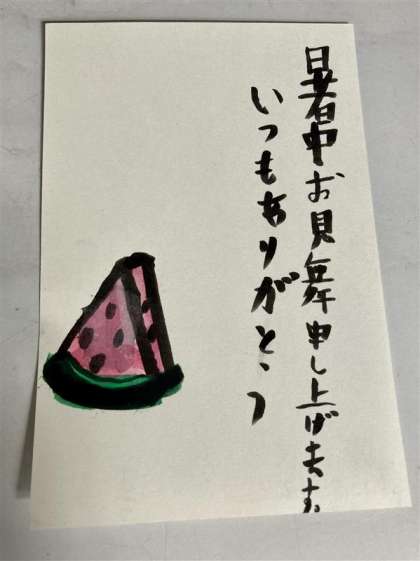 暑中お見舞申し上げます。
いつもありがとう